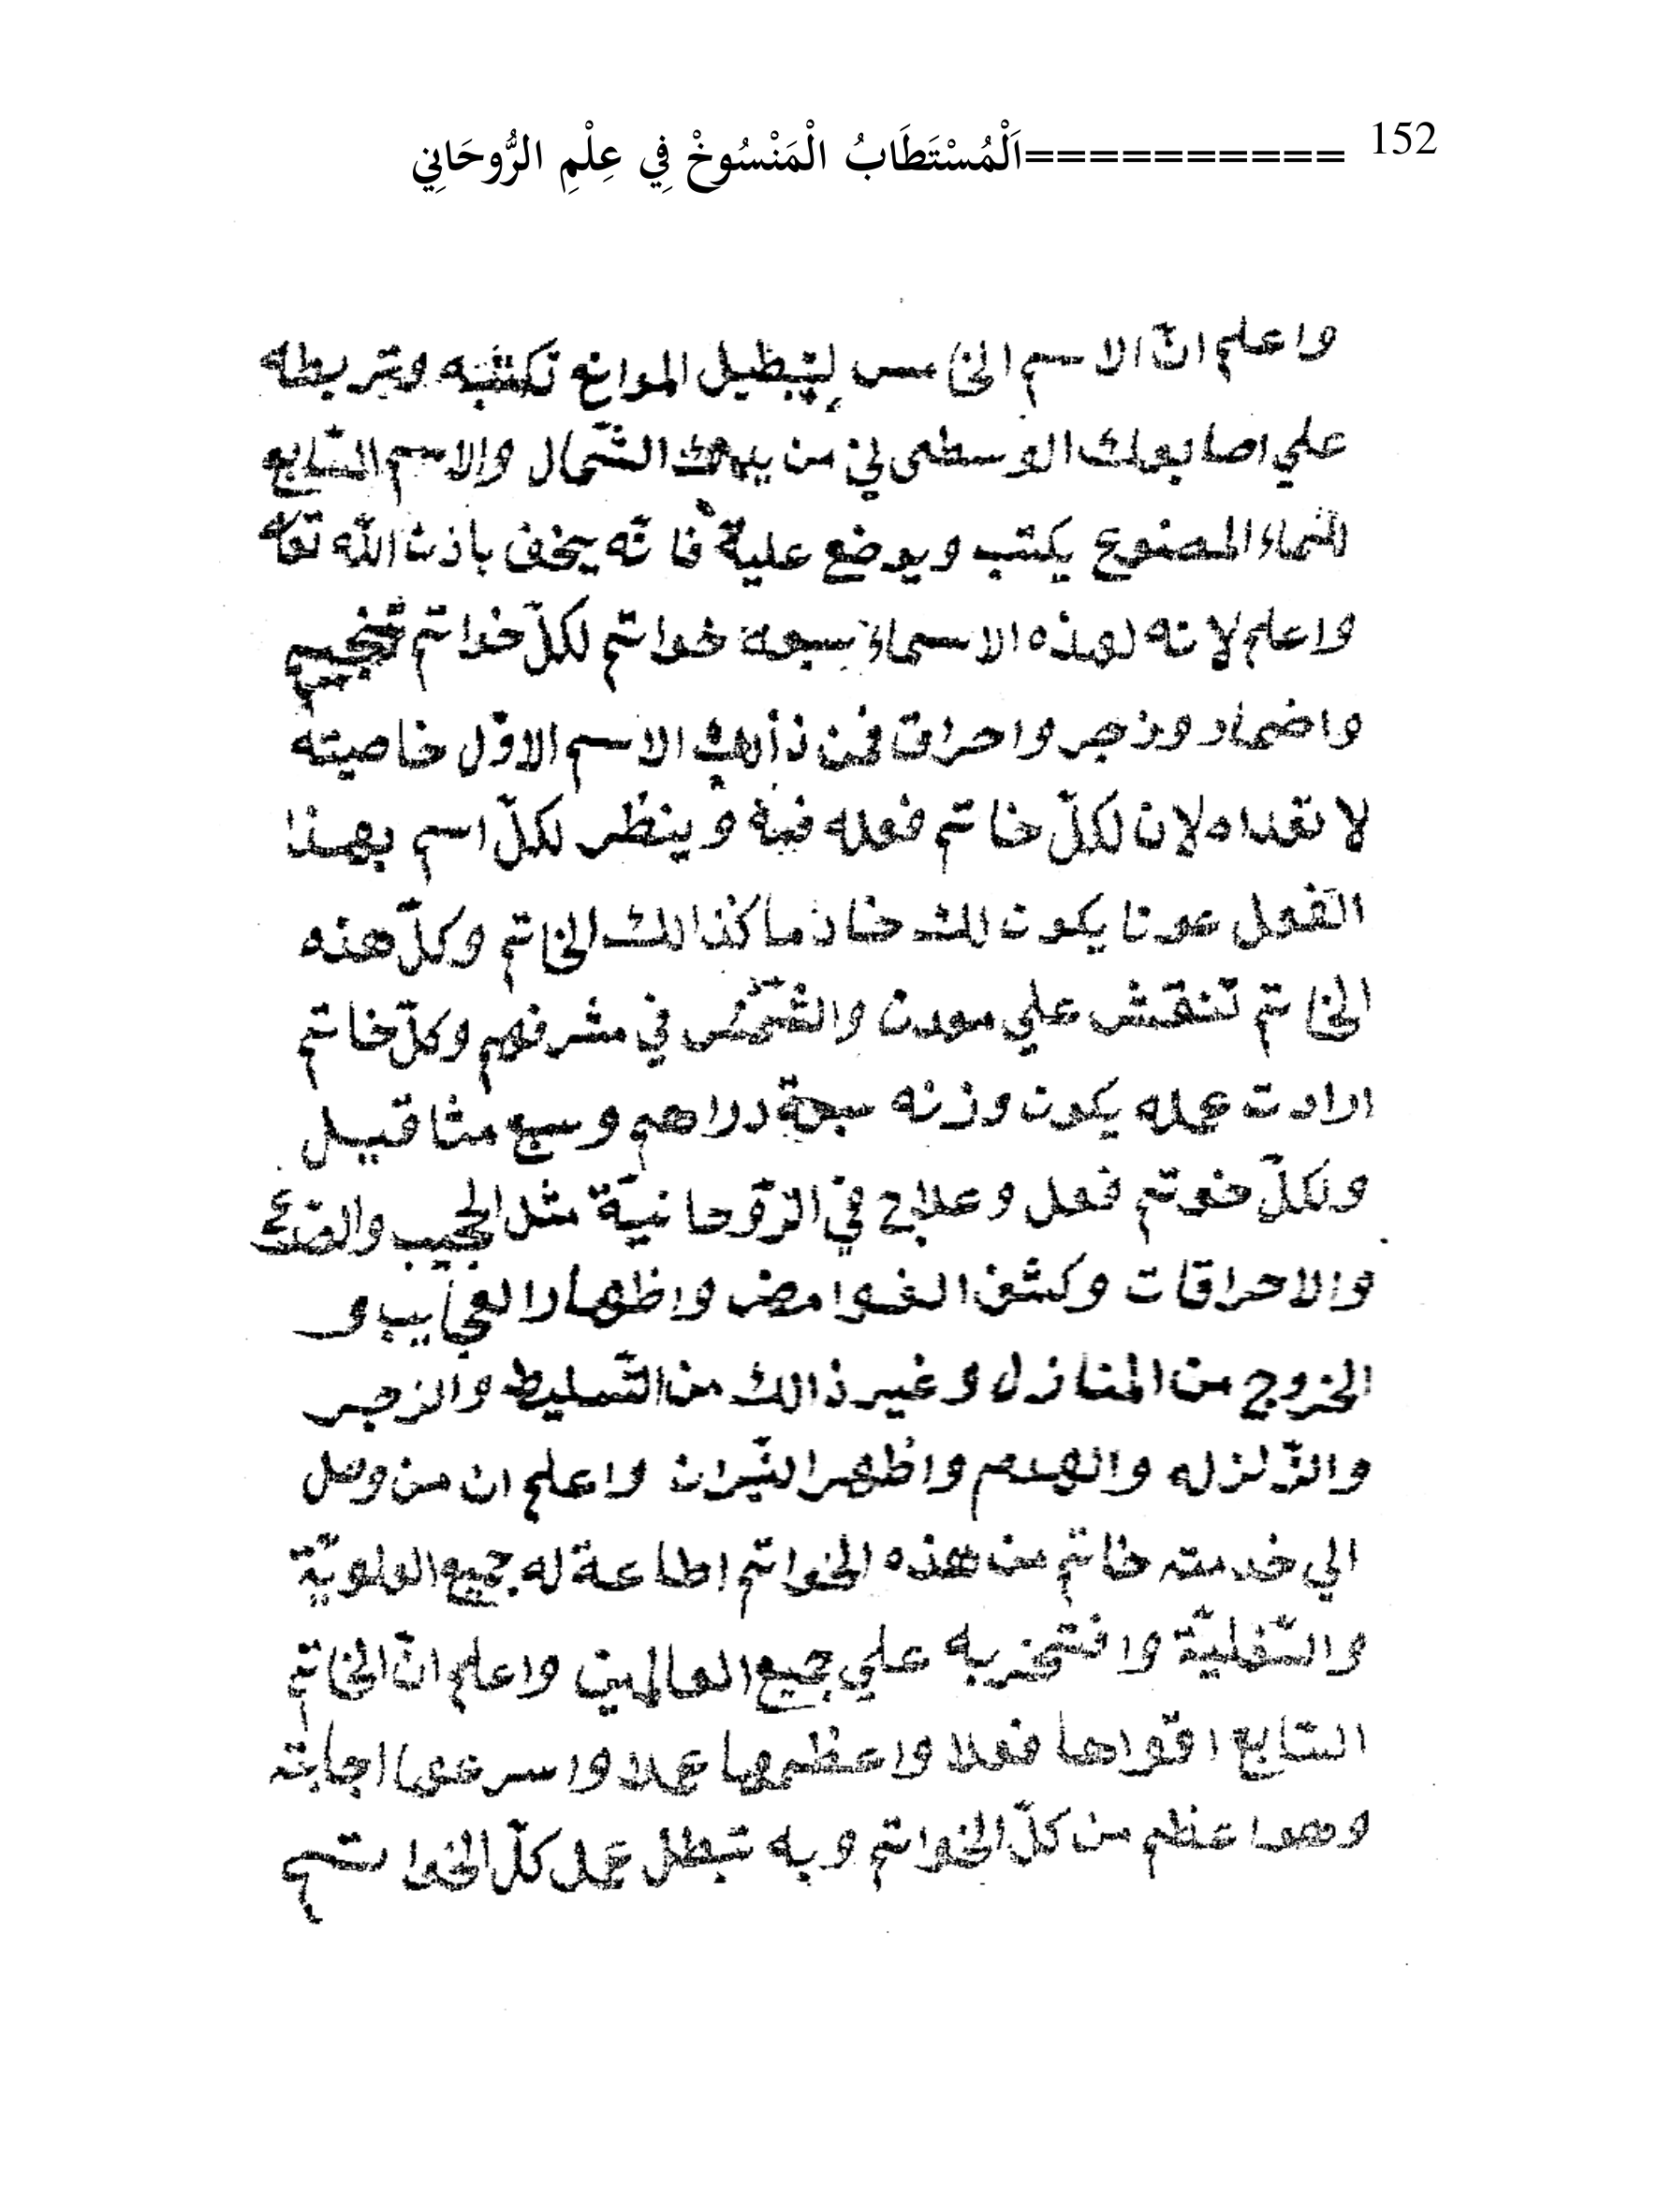 152 ==========اَلْمُسْتَطَابُ الْمَنْسُوخْ فِي عِلْمِ الرُّوحَانِي
واعلم انّ الاسم الخامس ليبطيل الموانع تكتبه وتربطه
علي اصابعك الوسطى لي من يدك الشّمال والاسم السّابع
للماء المصنوع يكتب ويوضع علية فانّه يخف باذن اللّه تعا
واعلم لانه لهذه الاسماء سبعة خواتم لكلّ خواتم
واضمار وزجر واحراق فمن ذالك الاسم الاوّل خاصيته
لا تعداه لان لكلّ خاتم فعله فية وينظر لكلّ اسم بهذا
الفعل عونا يكون لك خادما كذالك الخاتم وكلّ هذه
الخاتم تنقش علي معدن والشّمس في مشرفهم وكلّ خاتم
ارادت عمله يكون وزنه سبعة دراهم وسبع مثاقيل
ولكلّ خوتم فعل وعلاج في الرّوحانيّة مثل الجيب
والاحراقات وكشف الغوامض واظهار العجايب و
الخروج من المنازل وغير ذالك من التّسليط والزجر
والزّلزله والهدم واظهر النّيران واعلم ان من وصل
الي خدمته خاتم من هذه الخواتم اطاعة له جميع العلويّة
والسّفليّة وافتخر به علي جميع العالمين واعلم انّ الخاتم
السّابع اقواها فعلا واعظمها عملا واسرعها اجابته
وهو اعظم من كلّ الخواتم وبه تبطل عمل كلّ الخواتم